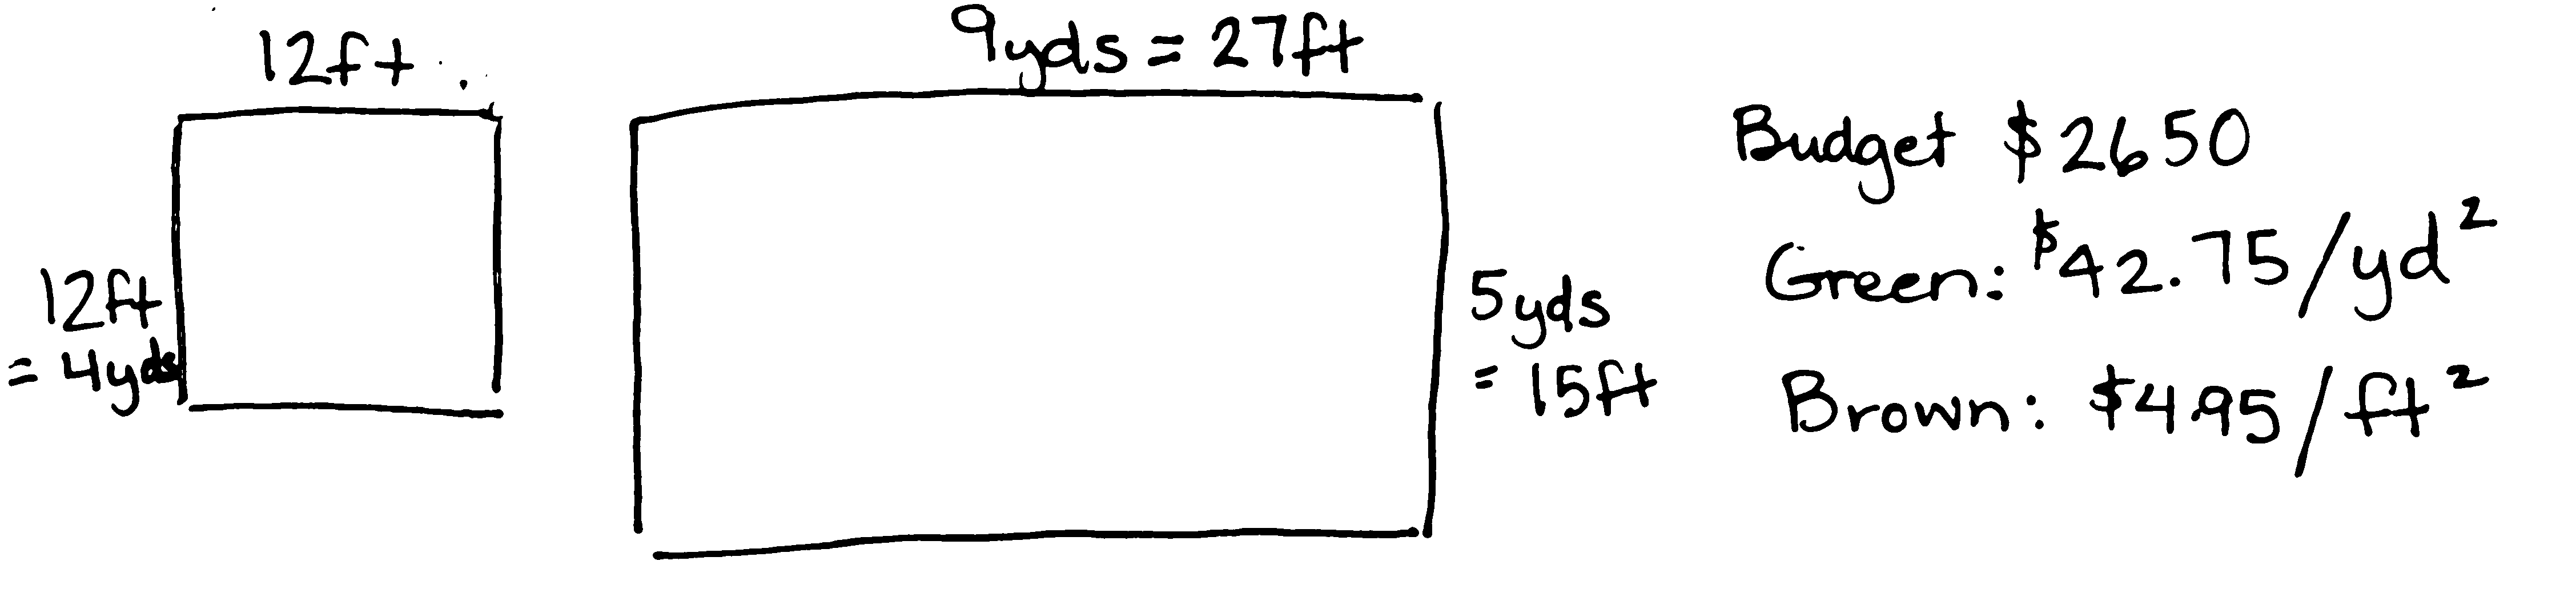 12ft
12ft
= 4yds
9yds = 27ft
5yds
= 15ft
Budget $2650
Green: $42.75/yd²
Brown: $4.95/ft²